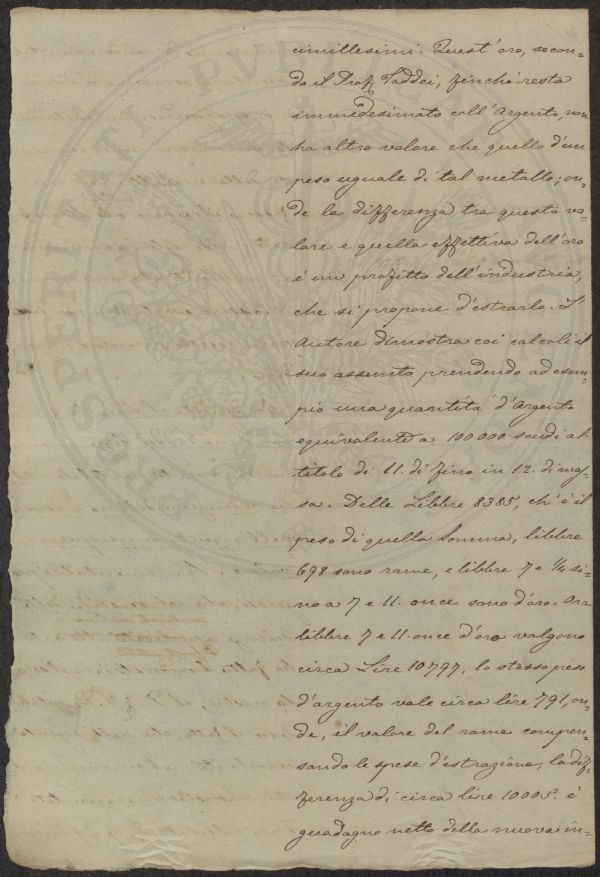 cimillesimi. Quest'oro, secon=
do il Prof. Taddei, finchè resta
immedesimato coll'Argento, non
ha altro valore che quello d'un
peso uguale di tal metallo; on=
de la differenza tra questo va=
lore e quella effettiva dell'oro
è un profitto dell'industria,
che si propone d'estrarlo. L'
Autore dimostra coi calcoli il
suo assunto prendendo ad esem=
pio una quantità d'Argento
equivalente a 100000 scudi al
titolo di 11. di fino in 12. di mas=
sa. Delle Libbre 8385, ch'è il
peso di quella somma, libbre
698 sono rame, e libbre 7 e 1/4 si=
no a 7 e 11. once sono d'oro. Ora
libbre 7 e 11. once d'oro valgono
circa Lire 10797, lo stesso peso
d'argento vale circa lire 791, on=
de, il valore del rame compen=
sando le spese d'estrazione, la dif=
ferenza di circa lire 10005. è
guadagno netto della nuova in=